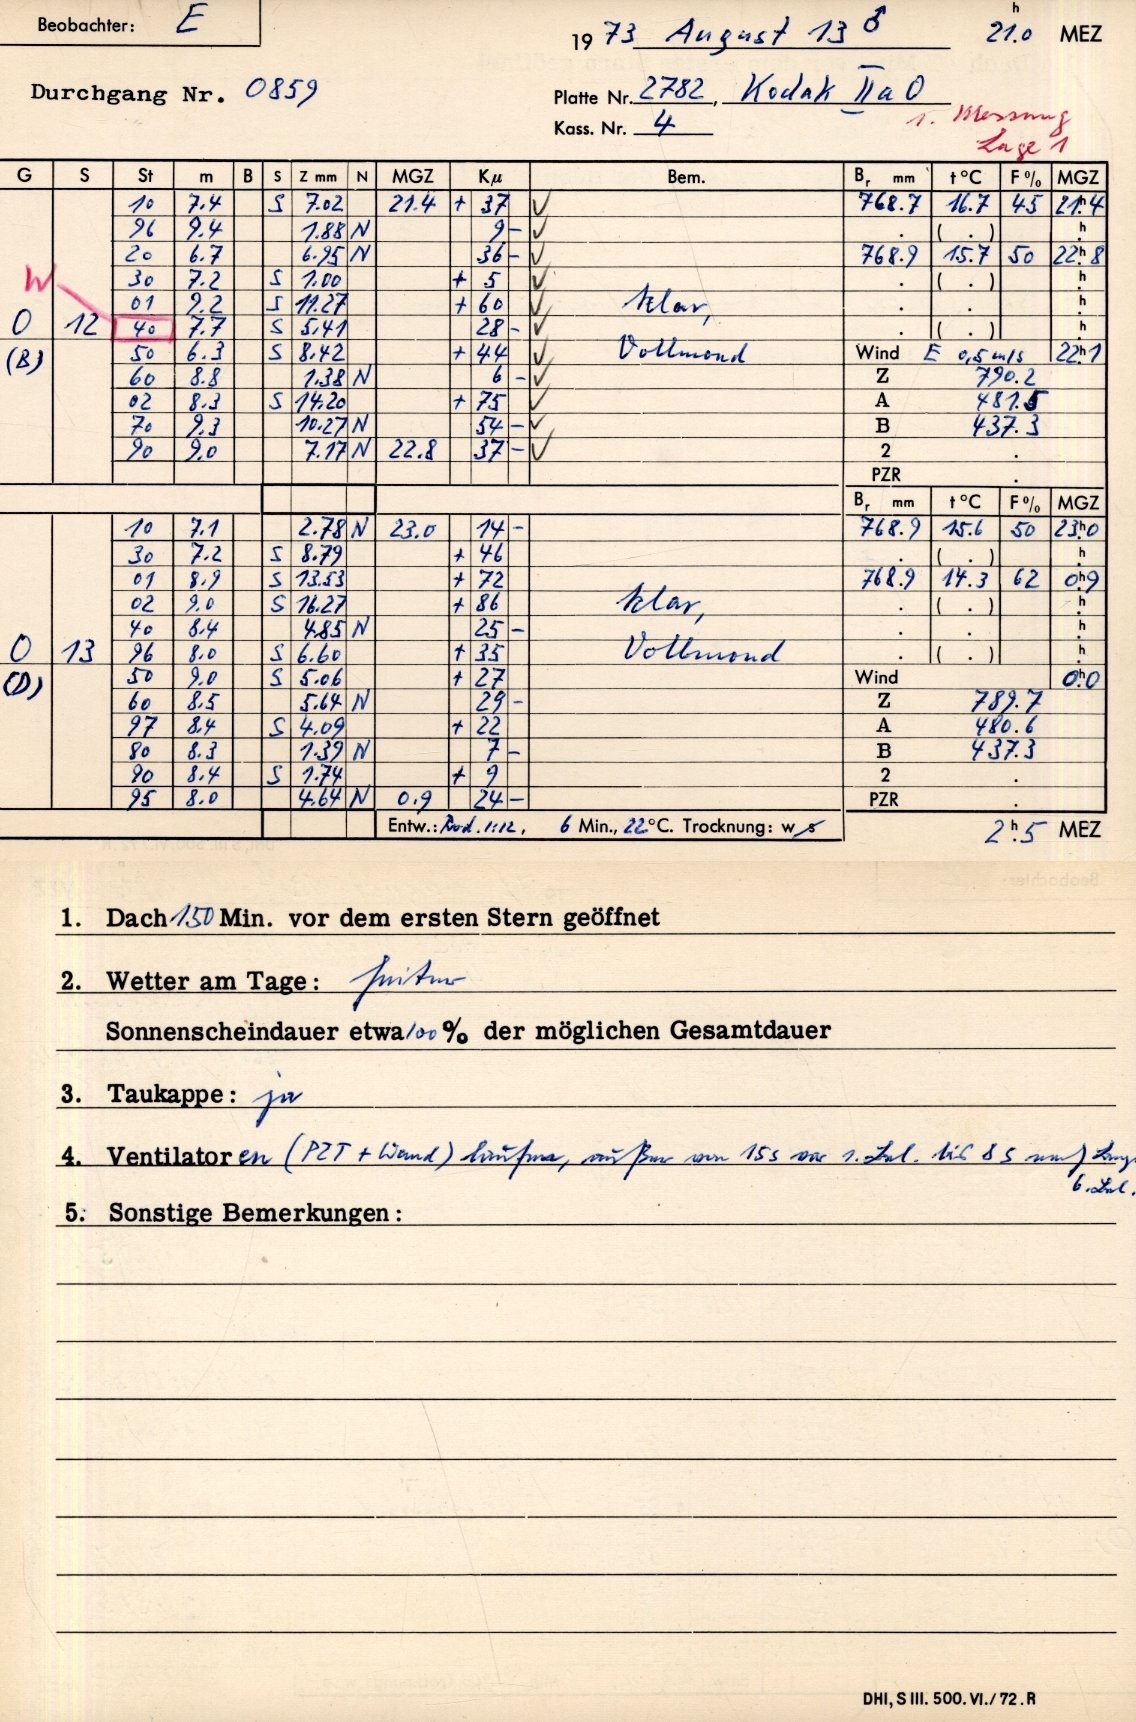 Beobachter: E
1973 August 13 ♂ 21.0 h MEZ
Durchgang Nr. 0859
Platte Nr. 2782, Kodak IIa O
Kass. Nr. 4
1. Messung
Lage 1
G S St m B S Z mm N MGZ Kμ Bem. Br mm t °C F % MGZ
10 7.4 S 7.02 21.4 + 37 ✓ 768.7 16.7 45 21h.4
96 9.4 1.88 N 9 - ✓ . ( . ) h.
20 6.7 6.95 N 36 - ✓ 768.9 15.7 50 22h.8
W
30 7.2 S 1.00 + 5 ✓ . ( . ) h.
01 9.2 S 11.27 + 60 ✓ klar, . . h.
O 12 40 7.7 S 5.41 28 - ✓ . ( . ) h.
(B) 50 6.3 S 8.42 + 44 ✓ Vollmond Wind E 0,5 m/s 22h.1
60 8.8 1.38 N 6 - ✓ Z 790.2
02 8.3 S 14.20 + 75 ✓ A 481.5
70 9.3 10.27 N 54 - ✓ B 437.3
90 9.0 7.17 N 22.8 37 - ✓ 2 .
PZR .
Br mm t °C F % MGZ
10 7.1 2.78 N 23.0 14 - 768.9 15.6 50 23h.0
30 7.2 S 8.79 + 46 . ( . ) h.
01 8.9 S 13.53 + 72 768.9 14.3 62 0h.9
02 9.0 S 16.27 + 86 klar, . ( . ) h.
40 8.4 4.85 N 25 - . . h.
O 13 96 8.0 S 6.60 + 35 Vollmond . ( . ) h.
(D) 50 9.0 S 5.06 + 27 Wind 0h.0
60 8.5 5.64 N 29 - Z 789.7
97 8.4 S 4.09 + 22 A 480.6
80 8.3 1.39 N 7 - B 437.3
90 8.4 S 1.74 + 9 2 .
95 8.0 4.64 N 0.9 24 - PZR .
Entw.: Rod. 1:12, 6 Min., 22°C. Trocknung: w s 2h.5 MEZ
1. Dach 150 Min. vor dem ersten Stern geöffnet
2. Wetter am Tage: heiter
Sonnenscheindauer etwa 100 % der möglichen Gesamtdauer
3. Taukappe: ja
4. Ventilatoren (PZT + Wand) laufen, außer von 15s vor 1. Bel. bis 8s nach
6. Bel.
5. Sonstige Bemerkungen:
DHI, S III. 500. VI./72. R